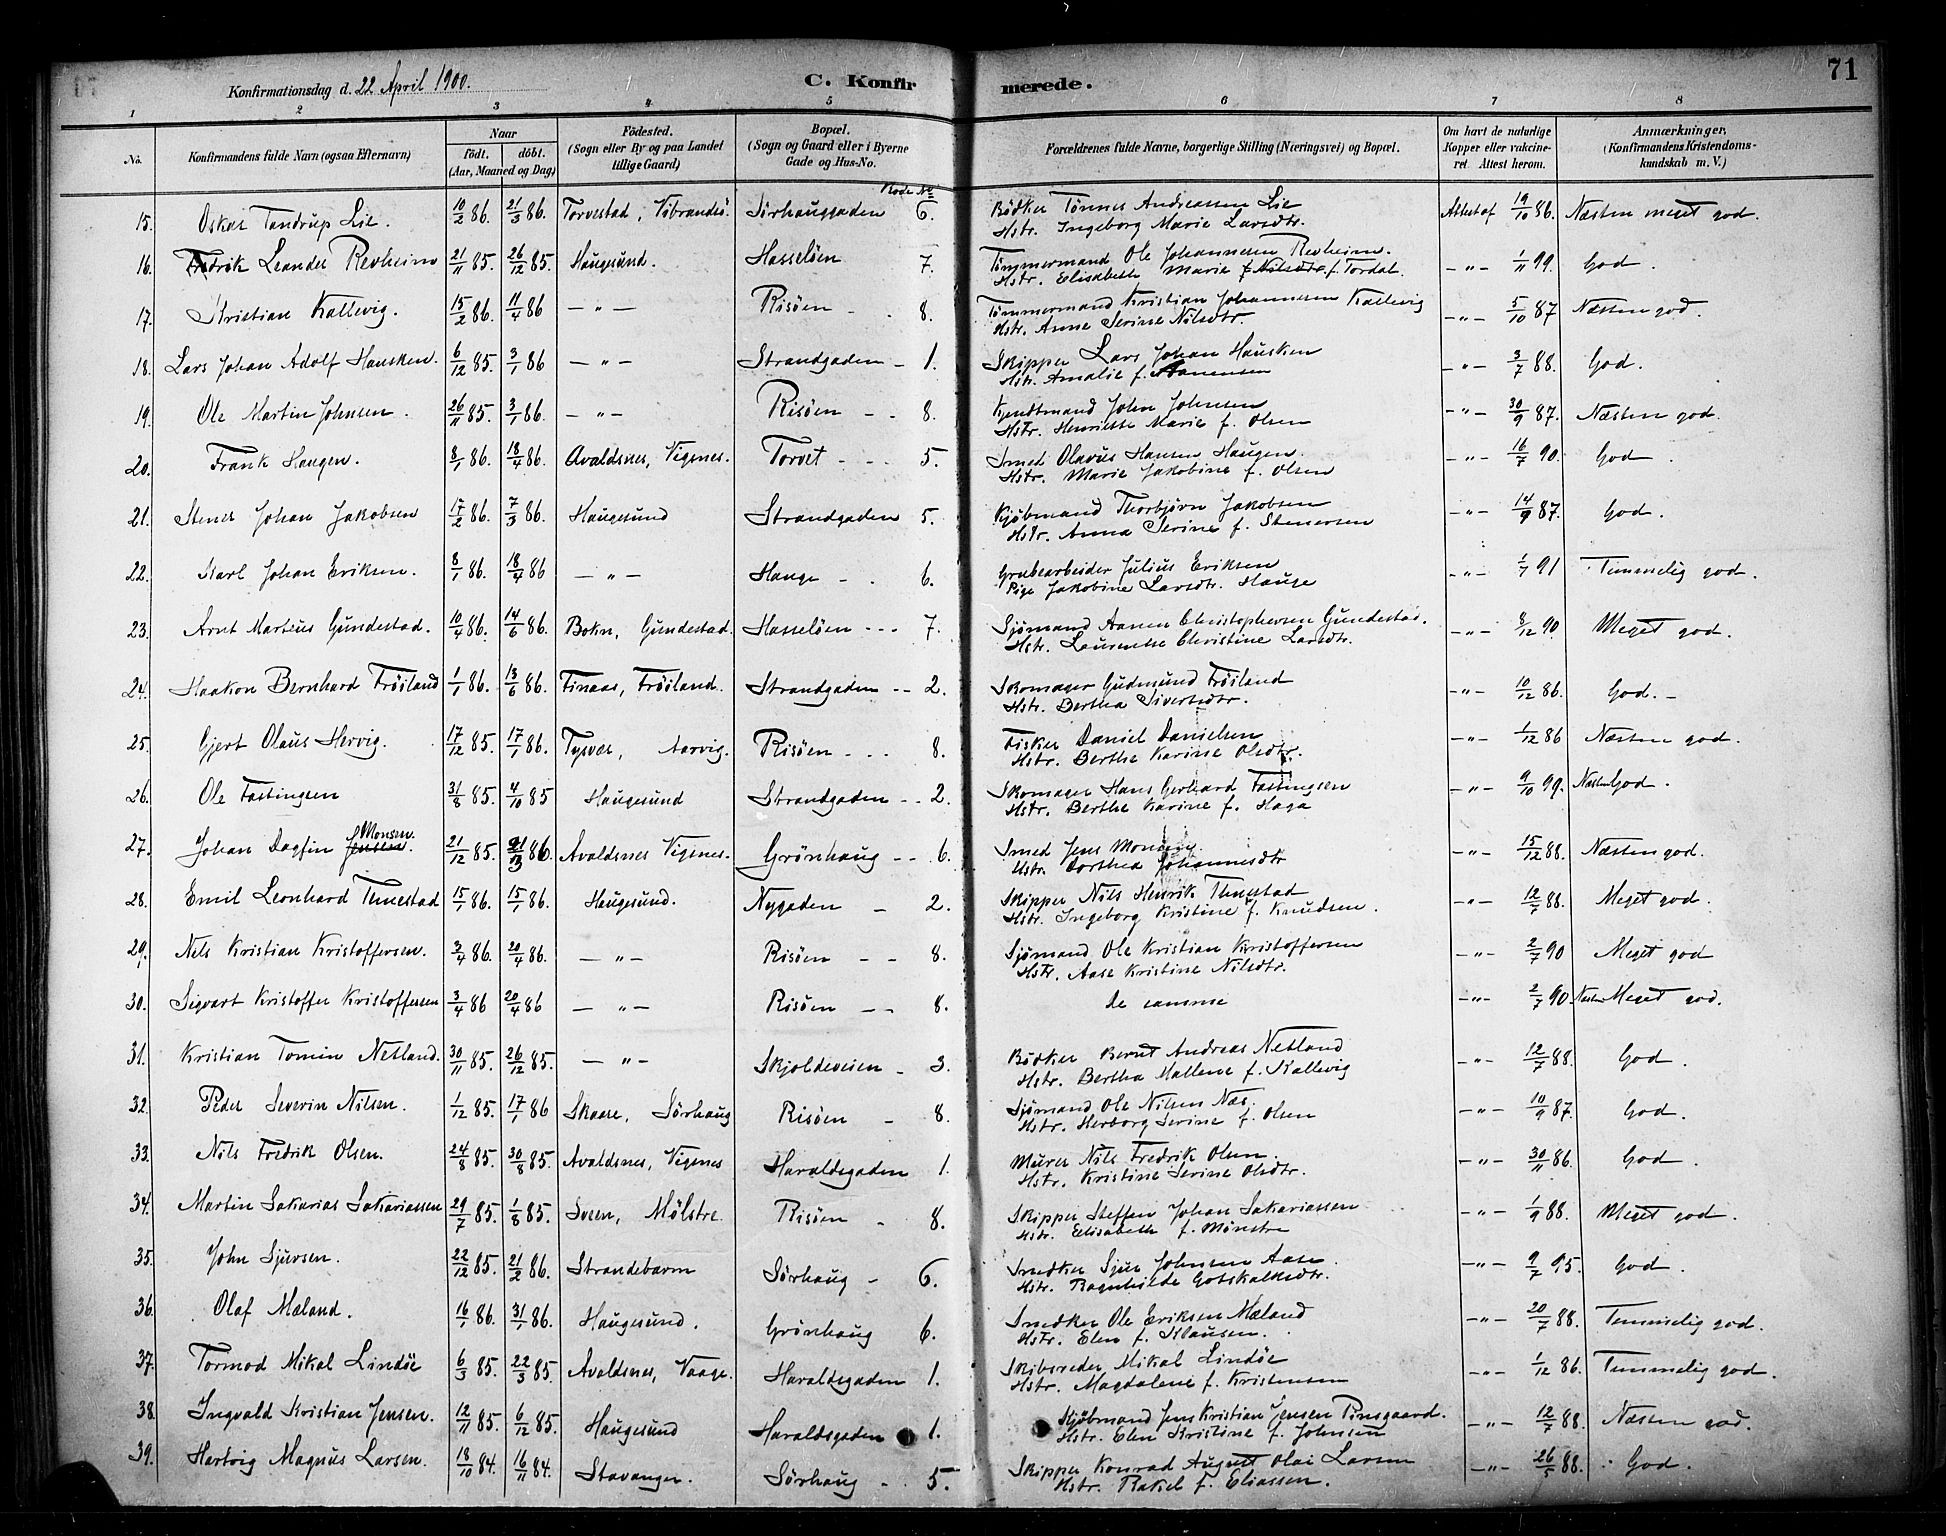 71
Konfirmationsdag d. 22 April 1900.
C. Konfirmerede.
1 2 3 4 5 6 7 8
No. Konfirmandens fulde Navn (ogsaa Efternavn) Naar født. døbt. (Aar, Maaned og Dag) Fødested. (Sogn eller By og paa Landet tillige Gaard) Bopæl. (Sogn og Gaard eller i Byerne Gade og Hus-No. Forældrenes fulde Navne, borgerlige Stilling (Næringsvei) og Bopæl. Om havt de naturlige Kopper eller vakcineret. Attest herom. Anmærkninger. (Konfirmandens Kristendomskundskab m. V.)
Rode No
15. Oskar Tandrup Lie. 10/2 86. 21/3 86. Torvestad, Vibrandsö. Sörhauggaden 6. Bödker Tönnes Andreassen Lie Attest af 19/10 86. Næsten meget god.
Hstr. Ingeborg Marie Larsdtr.
16. Fredrik Leander Revheim 21/11 85. 26/12 85. Haugesund. Hasselöen 7. Tömmermand Ole Johannesen Revheim. -"- 1/11 99. God.
Hstr. Elisabeth Marie f. Nilsdtr. f. Tordal.
17. Kristian Kallevig. 15/2 86. 11/4 86 -"- Risöen 8. Tömmermand Kristian Johannesen Kallevig -"- 5/10 87 Næsten god.
Hstr. Anne Serine Nilsdtr.
18. Lars Johan Adolf Hausken. 6/12 85. 3/1 86 -"- Strandgaden 1. Skipper Lars Johan Hausken -"- 3/7 88. God.
Hstr. Amalie f.
19. Ole Martin Johnsen. 26/11 85. 3/1 86. -"- Risöen 8. Kjendtmand John Johnsen -"- 30/9 87. Næsten god.
Hstr. Henriette Marie f. Olsen
20. Frank Haugen. 8/1 86. 18/4 86. Avaldsnes, Vigsnes. Torvet 5. Smed Olavus Hansen Haugen. -"- 16/7 90. God.
Hstr. Marie Jakobine f. Olsen
21. Stener Johan Jakobsen 17/2 86. 7/3 86. Haugesund Strandgaden 5. Kjöbmand Thorbjörn Jakobsen -"- 14/9 87. God.
Hstr. Anna Serine f. Stenersen
22. Karl Johan Eriksen. 8/1 86. 18/4 86 -"- Hauge 6. Grubearbeider Julius Eriksen -"- 1/7 91 Temmelig god.
Pige Jakobine Larsdtr. Hauge
23. Arnt Marteus Gundestad. 10/4 86. 14/6 86. Bokn, Gundestad. Hasselöen 7. Sjömand Aanen Christophersen Gundestad. -"- 8/12 90 Meget god.
Hstr. Laurentse Christine Larsdtr.
24. Haakon Bernhard Fröiland 1/1 86. 13/6 86. Finaas, Fröiland. Strandgaden 2. Skomager Gudmund Fröiland -"- 10/12 86. God.
Hstr. Bertha Sivertsdtr.
25. Gjert Olaus Hervig. 17/12 85. 17/1 86. Tysvær, Aarvig. Risöen 8. Fisker Daniel Danielsen -"- 1/12 86 Næsten god.
Hstr. Berthe Karine Olsdtr.
26. Ole Fastingsen 31/8 85. 4/10 85 Haugesund Strandgaden 2. Skomager Hans Gerhard Fastingsen -"- 9/10 99. Næsten God.
Hstr. Berthe Karine f. Haga
27. Johan Dagfin Jensen. Monsen. 21/12 85. 86. Avaldsnes Vigsnes. Grönhaug 6. Smed Jens Monsen. -"- 15/12 88. Næsten god.
Hstr. Dorthea Johannesdtr
28. Emil Leonhard Tennestad 15/1 86. 15/1 86. Haugesund. Nygaden 2. Skipper Nils Henrik Tennestad -"- 12/7 88. Meget god.
Hstr. Ingeborg Kristine f. Knudsen.
29. Nels Kristian Kristoffersen. 3/4 86. 20/4 86. -"- Risöen 8. Sjömand Ole Kristian Kristoffersen -"- 2/7 90 Meget god
Hstr. Aase Kristine Nilsdtr.
30. Sigvart Kristoffer Kristoffersen 3/4 86 20/4 86 -"- Risöen 8. De samme -"- 2/7 90. Næsten Meget god.
31. Kristian Tomin Netland. 30/11 85. 26/12 85. -"- Skjoldeveien 3. Bödker Bernt Andreas Netland -"- 12/7 88. God.
Hstr. Bertha Mallene f. Kallevig
32. Peder Severin Nilsen. 1/12 85. 17/1 86 Skaare, Sörhaug Risöen 8. Sjömand Ole Nilsen Næs. -"- 10/9 87. God.
Hstr. Herborg Serine f. Olsen
33. Nils Fredrik Olsen. 24/8 85. 30/8 85. Avaldsnes, Vigsnes Haraldsgaden 1. Murer Nils Fredrik Olsen. -"- 30/11 86. God.
Hstr. Kristine Serine Olsdtr.
34. Martin Sakarias Sakariassen 29/7 85. 1/8 85. Sveen, Mölstre. Risöen 8. Skipper Steffen Johan Sakariassen -"- 1/9 88. Meget god.
Hstr. Elisabeth f. Mönstre
35. John Sjursen. 22/12 85. 21/2 86. Strandebarm Sörhaug 6. Snedker Sjur Johnsen Aase. -"- 9/7 95. God.
Hstr. Ragnhilde Gotskalksdtr.
36. Olaf Mæland. 16/1 86. 31/1 86. Haugesund. Grönhaug 6. Snedker Ole Eriksen Mæland -"- 20/7 88. Temmelig god.
Hstr. Elen f. Klausen.
37. Tormod Mikal Lindöe 6/3 85. 22/3 85. Avaldsnes, Vaage. Haraldsgaden 1. Skibsreder Mikal Lindöe -"- 1/12 86. Temmelig god.
Hstr. Magdalene f. Kristensen
38. Ingvald Kristian Jensen. 12/11 85. 6/12 85. Haugesund Haraldsgaden 1. Kjöbmand Jens Kristian Jensen Pinsgaard. -"- 12/7 88. Næsten god.
Hstr. Elen Kristine f. Johnsen
39. Hartvig Magnus Larsen. 18/10 84. 16/11 84. Stavanger. Sörhaug 5. Skipper Konrad August Olai Larsen -"- 26/5 88. God.
Hstr. Rakel f. Eliassen.